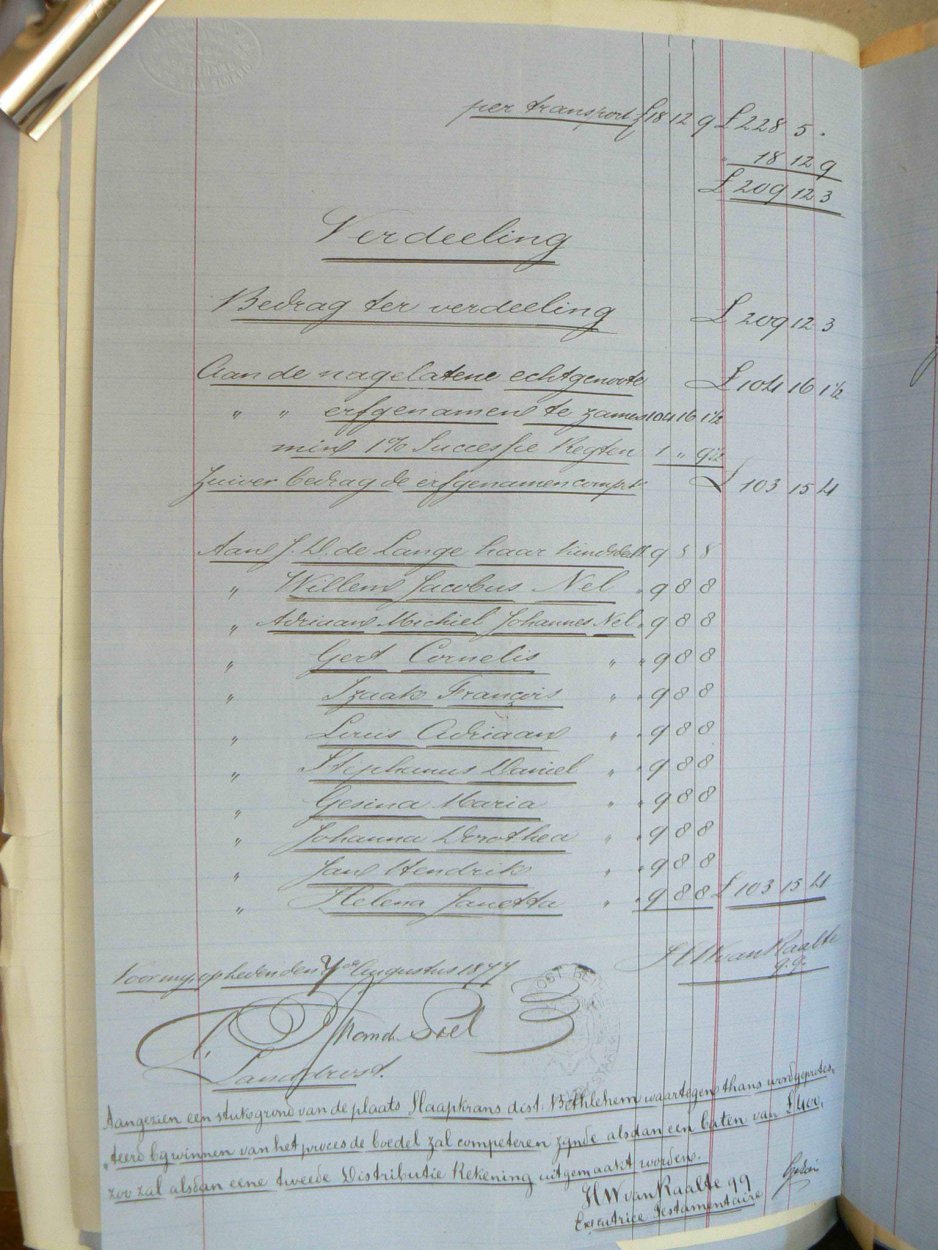 per transport £18 12 9 £228 5 .
" 18 12 9
£209 12 3
Verdeeling
Bedrag ter verdeeling £209 12 3
Aan de nagelatene echtgenoote £104 16 1½
" " erfgenamen te zamen 104 16 1½
min 1% Successie Regten 1 " 9½
Zuiver bedrag de erfgenamen compt £103 15 4
Aan J. D. de Lange haar kindsdeel 9 8 8
" Willem Jacobus Nel " 9 8 8
" Adriaan Michiel Johannes Nel " 9 8 8
" Gert Cornelis " " 9 8 8
" Izaak François " " 9 8 8
" Louis Adriaan " " 9 8 8
" Stephanus Daniel " " 9 8 8
" Gesina Maria " " 9 8 8
" Johanna Dorothea " " 9 8 8
" Jan Hendrik " " 9 8 8
" Helena Janetta " " 9 8 8 £103 15 4
Voor my, op heden den 7de Augustus 1877
H W van Raalte
q.q.
Landdrost.
Aangezien een stuk grond van de plaats Slaapkrans dist. Bethlehem waartegen thans word geprotes-
"teerd by winnen van het proces de boedel zal competeren zynde alsdan een baten van £400.
zoo zal alsdan eene tweede Distributie Rekening uitgemaakt worden.
H W van Raalte qq
Executrice Testamentaire